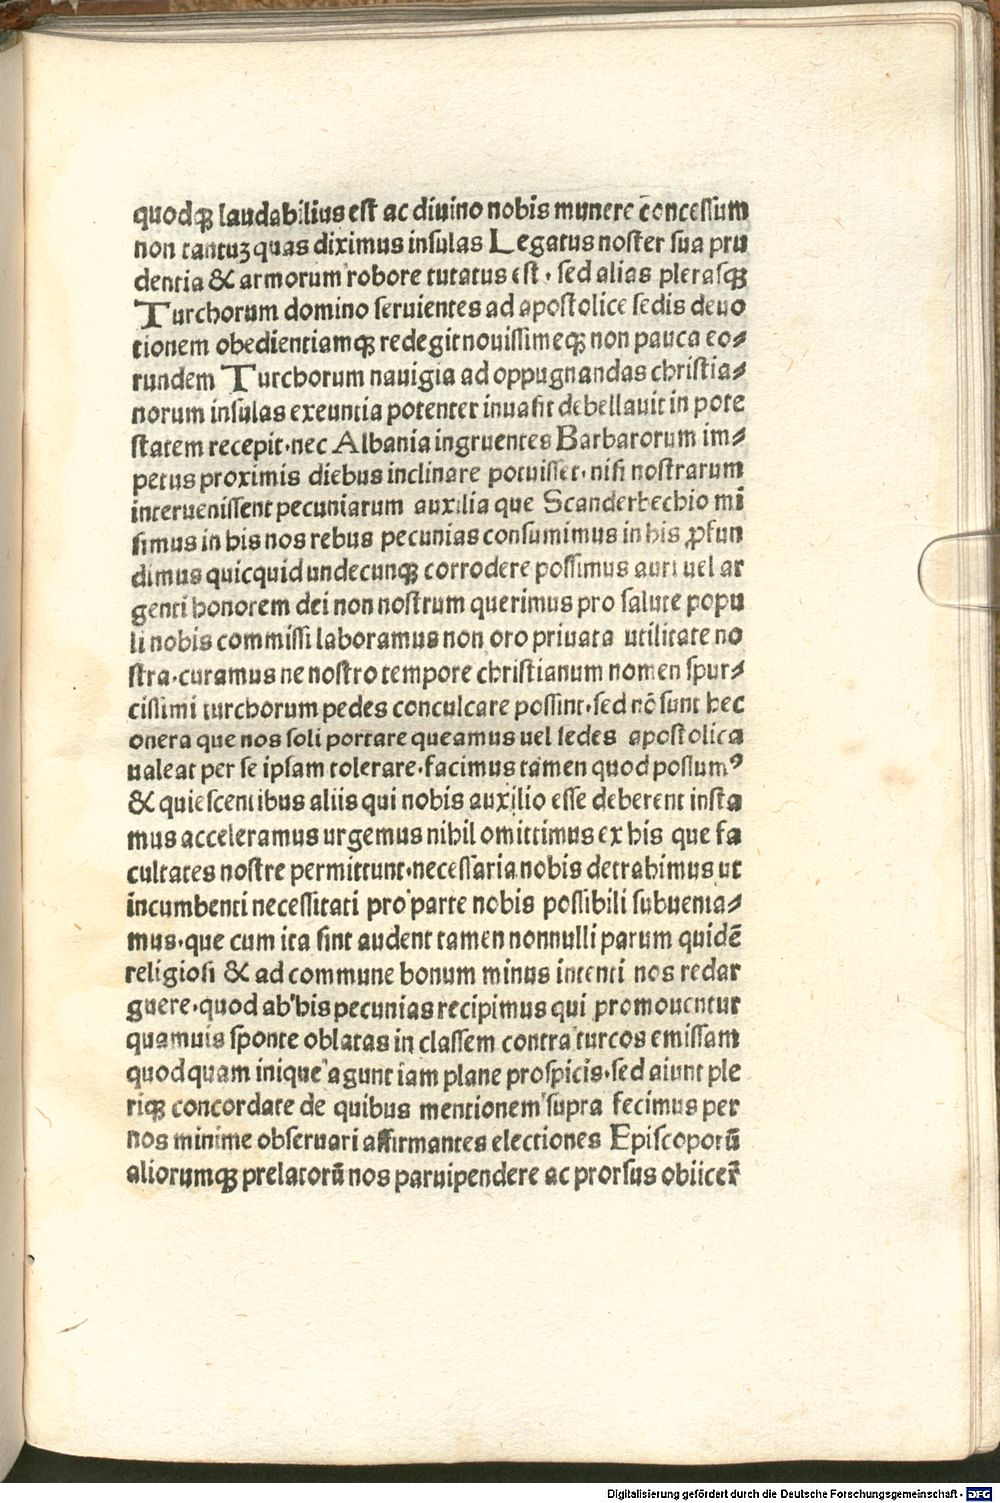 quodqꝫ laudabilius eſt ac diuino nobis munere cōceſſum
non tantuꝫ quas diximus inſulas Legatus noſter sua pru
dentia & armorum robore tutatus eſt · sed alias pleraſqꝫ
Turchorum domino ſeruientes ad apoſtolice ſedis deuo
tionem obedientiamqꝫ redegit nouiſſimeqꝫ non pauca eo⸗
rundem Turchorum nauigia ad oppugnandas chriſtia⸗
norum inſulas exeuntia potenter inuaſit debellauit in pote
ſtatem recepit·nec Albania ingruentes Barbarorum im⸗
petus proximis diebus inclinare potuiſſet·niſi noſtrarum
interueniſſent pecuniarum auxilia que Scanderbechio mi
ſimus in his nos rebus pecunias conſumimus in his ꝓfun
dimus quicquid undecunqꝫ corrodere poſſimus auri uel ar
genti honorem dei non noſtrum querimus pro ſalute popu
li nobis commiſſi laboramus non oro priuata utilitate no
ſtra·curamus ne noſtro tempore chriſtianum nomen ſpur⸗
ciſſimi turchorum pedes conculcare poſſint·sed nō ſunt hec
onera que nos ſoli portare queamus uel ſedes apoſtolica
ualeat per ſe ipſam tolerare·facimus tamen quod poſſumꝰ
& quieſcentibus aliis qui nobis auxilio eſſe deberent inſta
mus acceleramus urgemus nihil omittimus ex his que fa
cultates noſtre permittunt·neceſſaria nobis detrahimus ut
incumbenti neceſſitati pro parte nobis poſſibili ſubuenia⸗
mus·que cum ita ſint audent tamen nonnulli parum quidē
religioſi & ad commune bonum minus intenti nos redar
guere·quod ab his pecunias recipimus qui promouentur
quamuis ſponte oblatas in claſſem contra turcos emiſſam
quod quam inique agunt iam plane proſpicis·sed aiunt ple
riqꝫ concordate de quibus mentionem supra fecimus per
nos minime obſeruari affirmantes electiones Epiſcoporū
aliorumqꝫ prelatorū nos paruipendere ac prorſus obiicer̄
Digitalisierung gefördert durch die Deutsche Forschungsgemeinschaft - DFG